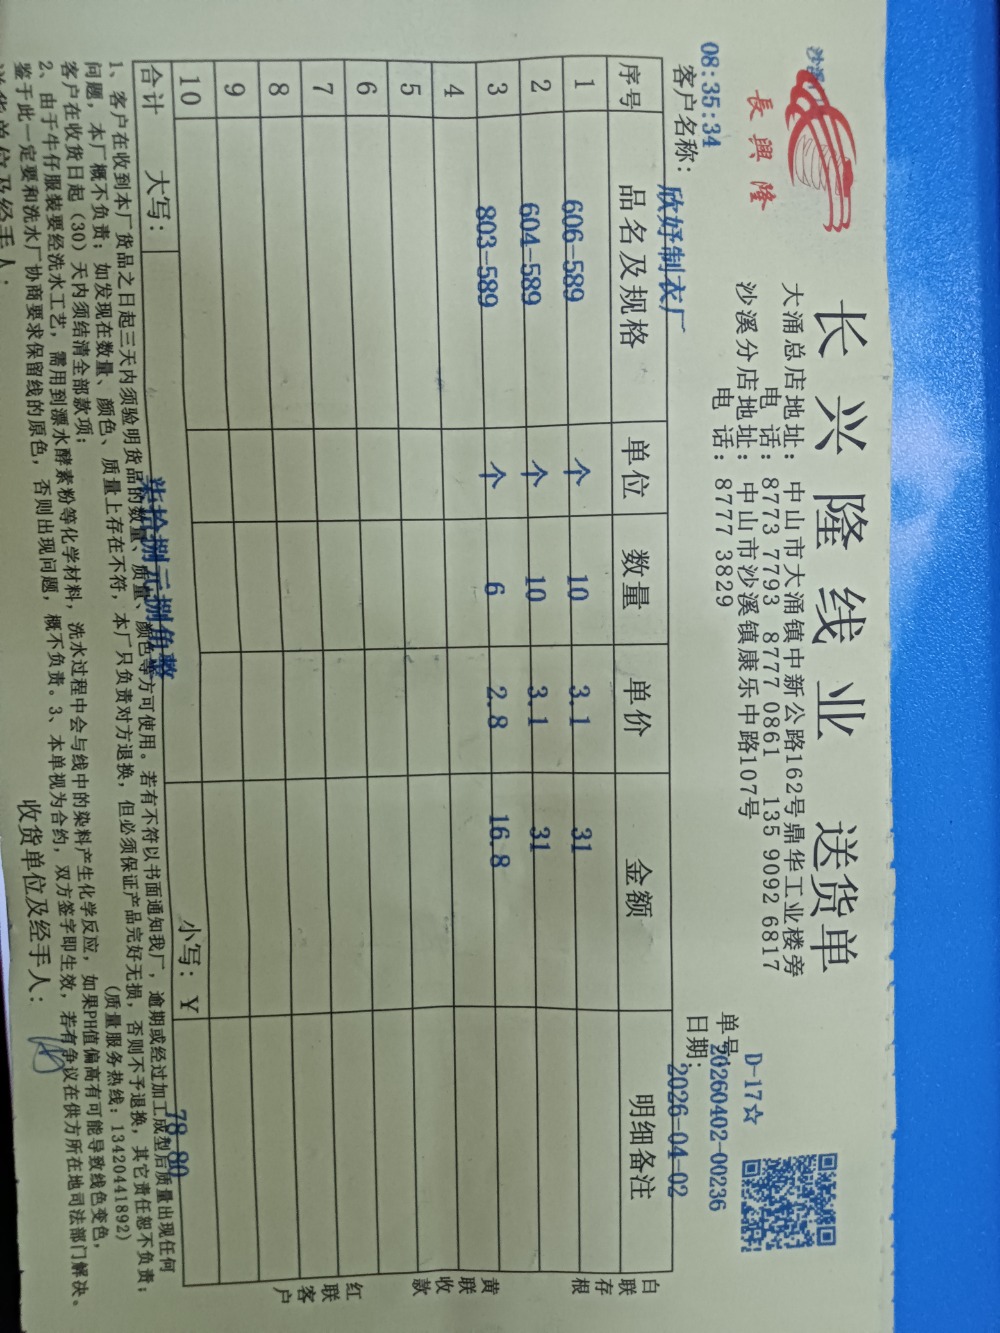 沙溪
長興隆
长兴隆线业 送货单
大涌总店地址：中山市大涌镇中新公路162号鼎华工业楼旁
电 话：8773 7793 8777 0861 135 9092 6817
沙溪分店地址：中山市沙溪镇康乐中路107号
电 话：8777 3829
D-17☆
单号：20260402-00236
日期：2026-04-02
08:35:34
客户名称：欣妤制衣厂
序号 品名及规格 单位 数量 单价 金额 明细备注
1 606-589 个 10 3.1 31
2 604-589 个 10 3.1 31
3 803-589 个 6 2.8 16.8
4
5
6
7
8
9
10
合计 大写：柒拾捌元捌角整 小写：¥ 78.80
白联存根
黄联收款
红联客户
1、客户在收到本厂货品之日起三天内须验明货品的数量、质量、颜色等方可使用。若有不符以书面通知我厂，逾期或经过加工成型后质量出现任何
问题，本厂概不负责；如发现在数量、颜色、质量上存在不符，本厂只负责对方退换，但必须保证产品完好无损，否则不予退换，其它责任恕不负责；
客户在收货日起（30）天内须结清全部款项； （质量服务热线：13420441892）
2、由于牛仔服装要经洗水工艺，需用到漂水酵素粉等化学材料，洗水过程中会与线中的染料产生化学反应，如果PH值偏高有可能导致线色变色，
鉴于此一定要和洗水厂协商要求保留线的原色，否则出现问题，概不负责。3、本单视为合约，双方签字即生效，若有争议在供方所在地司法部门解决。
送货单位及经手人： 收货单位及经手人：